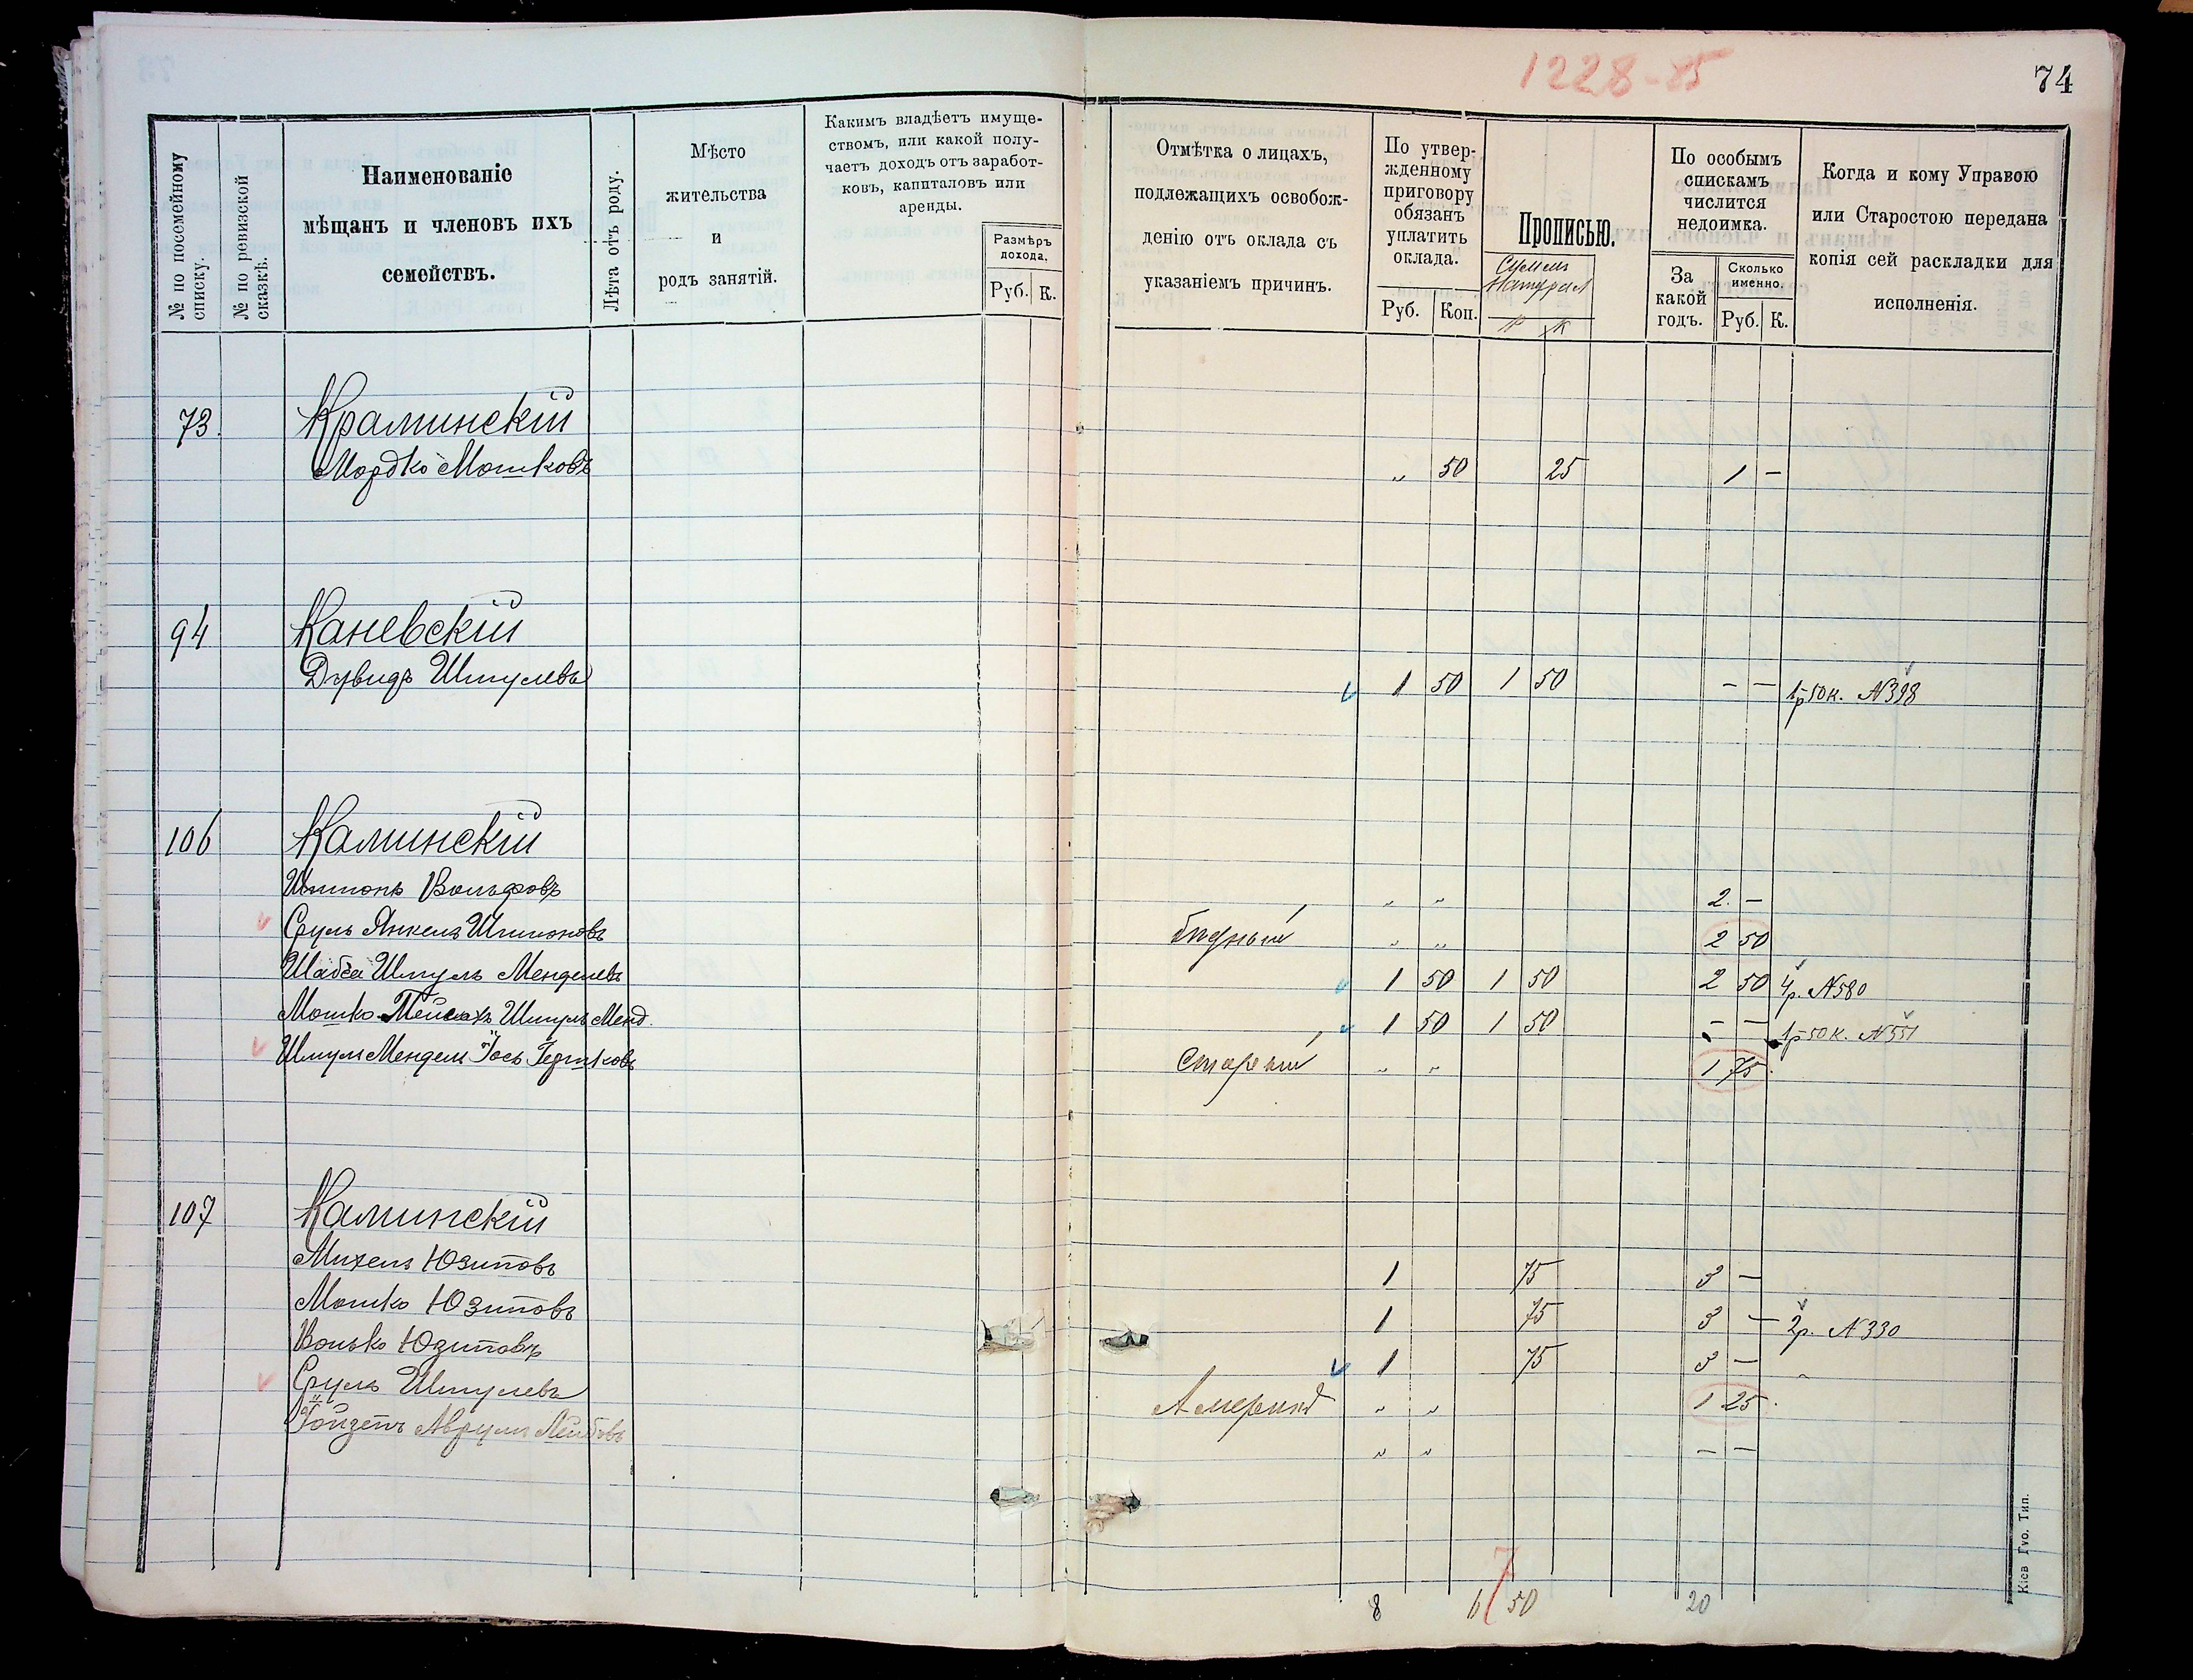 1228-85
74
№ по посемейному списку.
№ по ревизской сказкѣ.
Наименованіе
мѣщанъ и членовъ ихъ
семействъ.
Лѣта отъ роду.
Мѣсто
жительства
и
родъ занятій.
Какимъ владѣетъ имуще-
ствомъ, или какой полу-
чаетъ доходъ отъ заработ-
ковъ, капиталовъ или
аренды.
Размѣръ
дохода.
Руб. К.
Отмѣтка о лицахъ,
подлежащихъ освобож-
денію отъ оклада съ
указаніемъ причинъ.
По утвер-
жденному
приговору
обязанъ
уплатить
оклада.
Руб. Коп.
Прописью.
Р К
По особымъ
спискамъ
числится
недоимка.
За
какой
годъ.
Сколько
именно.
Руб. К.
Когда и кому Управою
или Старостою передана
копія сей раскладки для
исполненія.
73. Краминскій
Мордко Мошковъ " 50 25 1 –
94 Каневскій
Дувидъ Шмулевъ 1 50 1 50 – – 1р 50к. N398
106 Каминскій
Шимонъ Вольфовъ " " 2. –
Сруль Янкель Шимоновъ бѣдный " " 2 50
Шабса Шмуль Менделевъ 1 50 1 50 2 50 4р. N580
Мошко Пейсахъ Шмуль Менд. 1 50 1 50 – – 1р 50к. N551
Шмул Мендель Іось Гершковъ Старый " " 1 75.
107 Каминскій
Михель Юзиповъ 1 75 3 –
Мошко Юзиповъ 1 75 3 – 2р. N330
Волько Юзиповъ 1 75 3 –
Сруль Шмулевъ Америкѣ " " 1 25.
Іойзепъ Аврум Лейбовъ " " – –
8 6 50 20
7
Кіев Губ. Тип.